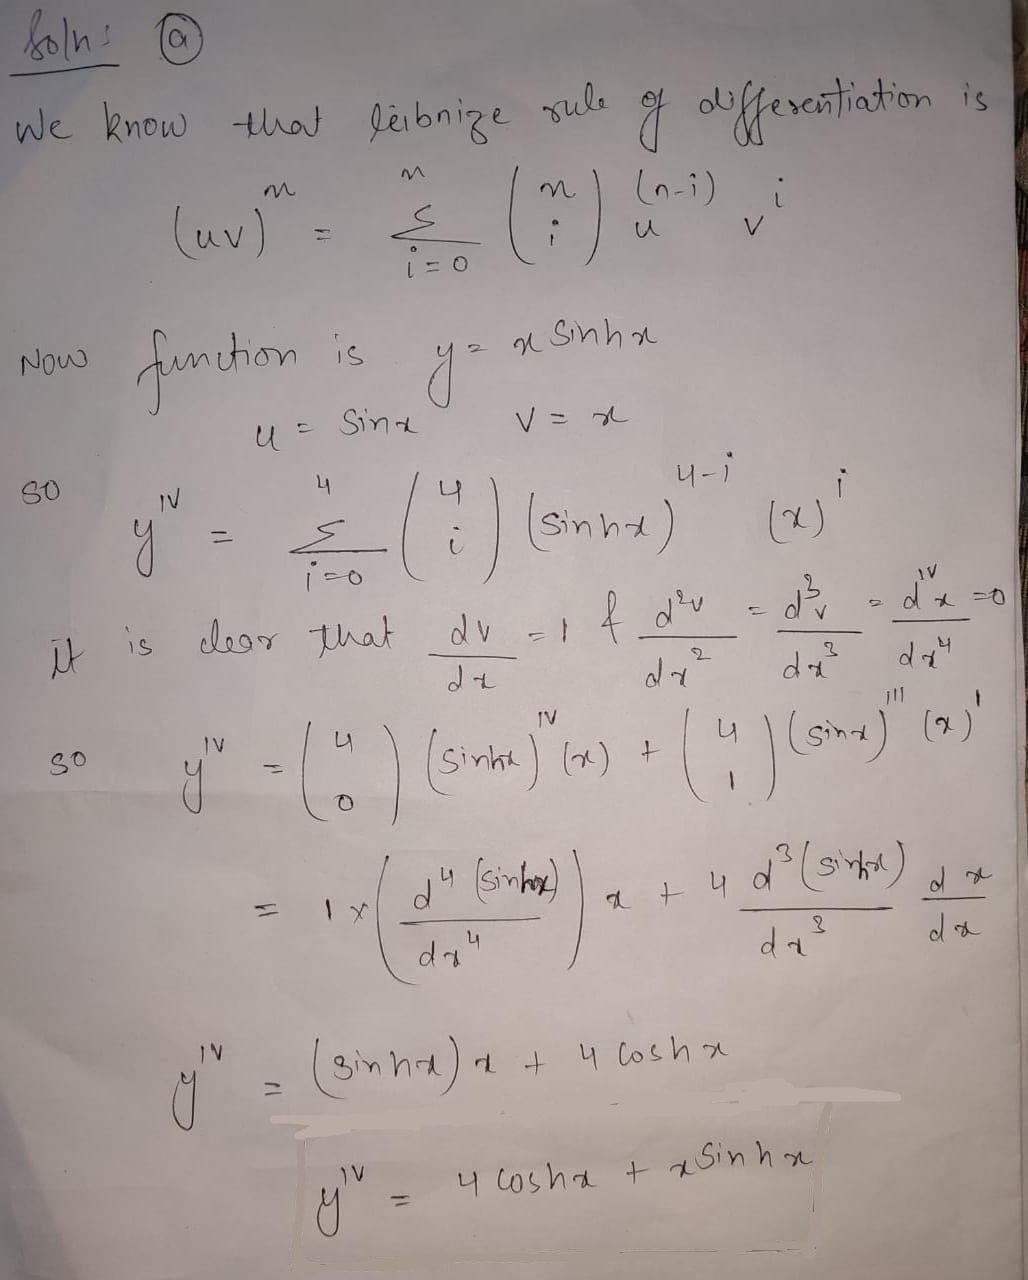 Soln: ⓐ
We know that leibnize rule of differentiation is
(uv)ⁿ = Σⁿ_{i=0} (n i) u^{(n-i)} v^i
Now function is y = x sinhx
u = sinx v = x
so y^{IV} = Σ⁴_{i=0} (4 i) (sinhx)^{4-i} (x)^i
it is clear that dv/dx = 1 & d²v/dx² = d³v/dx³ = d^{IV}x/dx⁴ = 0
so y^{IV} = (4 0) (sinhx)^{IV} (x) + (4 1) (sinx)^{III} (x)^{I}
= 1 × (d⁴(sinhx)/dx⁴) x + 4 d³(sinhx)/dx³ dx/dx
y^{IV} = (sinhx) x + 4 coshx
y^{IV} = 4 coshx + x sinhx